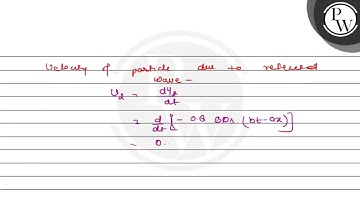 PW
Velocity of particle due to reflected
wave -
U₂ = dy₂/dt
= d/dt [- 0.8 cos (bt-ax)]
= 0.